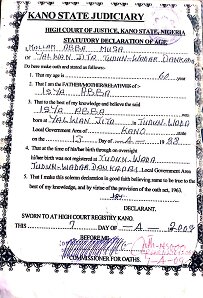 KANO STATE JUDICIARY
HIGH COURT OF JUSTICE, KANO STATE, NIGERIA
STATUTORY DECLARATION OF AGE
MALLAM ABBA MUSA
Of YALWAN JITA TUDUN-WADAR DANKADAI
Do here make oath and stated as follows:-
1. That my age is 60 year
2. That I am the FATHER/MOTHER/RELATIVE of:-
ISYA ABBA
3. That to the best of my knowledge and believe the said
ISYA ABBA was
born at YALWAN JITA in TUDUN-WADA
Local Government Area of KANO state
on the 13 Day of 4 19
4. That at the time of his/her birth through on oversight
his/her birth was not registered at TUDUN-WADA
TUDUN-WADAR DANKADAI Local Government Area
5. That I make this solemn declaration in good faith believing same to be true to the
best of my knowledge, and by virtue of the provision of the oath act, 1963.
DECLARANT.
SWORN TO AT HIGH COURT REGISTRY KANO.
THIS 7 DAY OF 4 2009
BEFORE ME
COMMISSIONER FOR OATHS